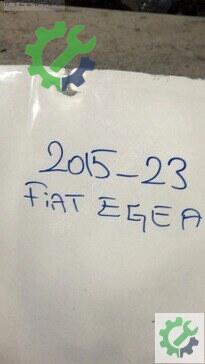 2015-23
FiAT EGEA